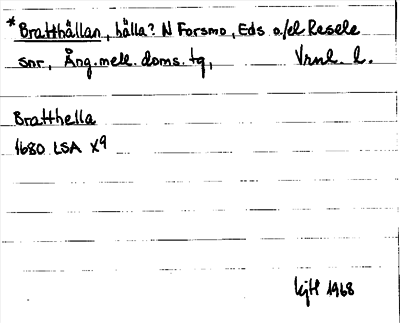 *Bratthällan, hälla? N Forsmo, Eds o/el Resele
snr, Ång. mell. doms. tg, Vrnl. l.
Bratthella
1680 LSA X9
kjH 1968